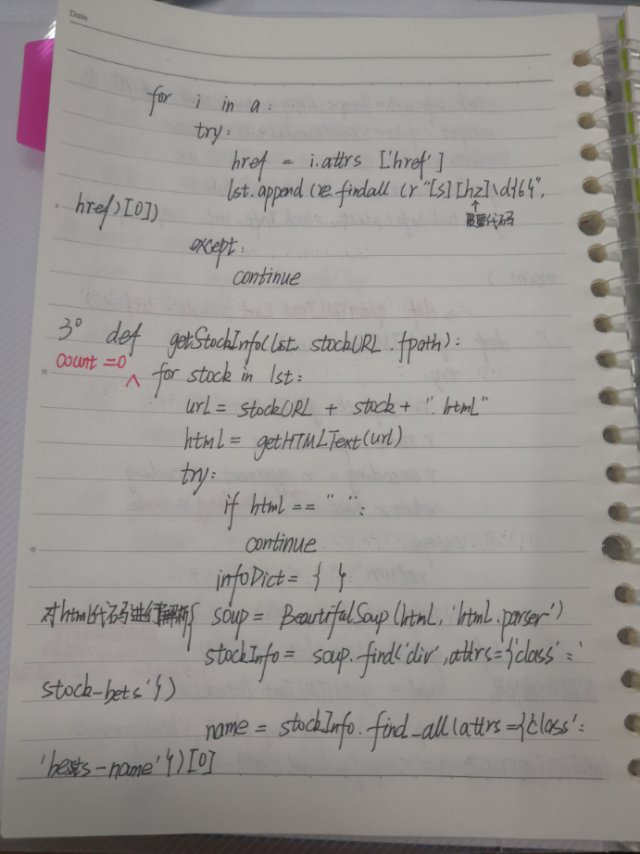 Date
for i in a:
try:
href = i.attrs ['href']
lst.append (re.findall (r "[s][hz]\d{6}",
href)[0])
except:
continue
3° def getStockInfo(lst, stockURL, fpath):
count = 0
for stock in lst:
url = stockURL + stock + ".html"
html = getHTMLText(url)
try:
if html == " ":
continue
infoDict = { }
对html代码进行解析{ soup = BeautifulSoup(html, 'html.parser')
stockInfo = soup.find('div', attrs={'class':'
stock-bets'})
name = stockInfo.find_all(attrs={'class':
'bets-name'})[0]